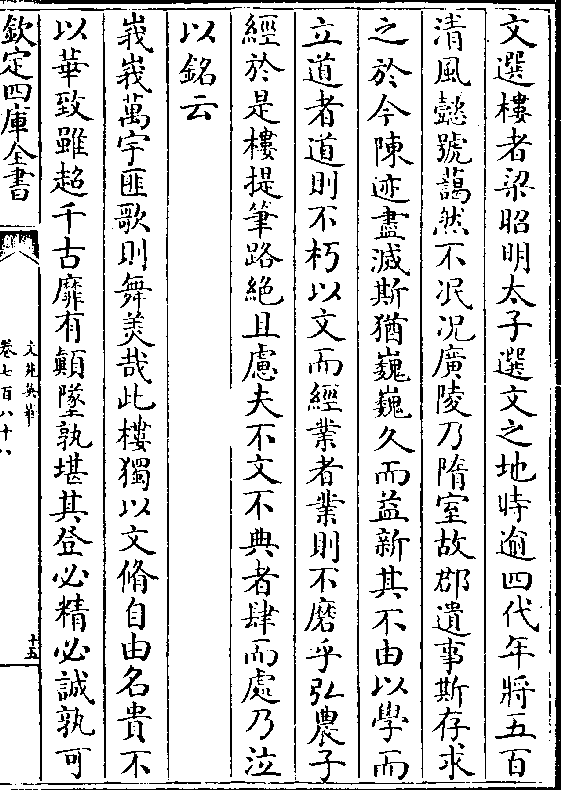 文選樓者梁昭明太子選文之地時逾四代年將五百
清風懿號藹然不泯况廣陵乃隋室故郡遺事斯存求
之於今陳迹盡滅斯猶巍巍久而益新其不由以學而
立道者道則不朽以文而經業者業則不磨乎弘農子
經於是樓提筆路絶且慮夫不文不典者肆而處乃泣
以銘云
峩峩萬宇匪歌則舞羙哉此樓獨以文脩自由名貴不
以華致雖超千古靡有顛墜孰堪其登必精必誠孰可
欽定四庫全書
文苑英華
卷七百八十八
十五